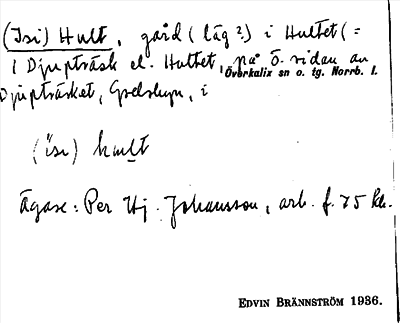 (Isi) Hult, gård (läg?) i Hultet (=
1 Djupträsk el. Hultet, på Ö. sidan av
Överkalix sn o. tg. Norrb. l.
Djupträsket, Grelsbyn, i
(ïsi) hult
Ägare: Per Hj. Johansson, arb. f. 75 kr.
EDVIN BRÄNNSTRÖM 1936.